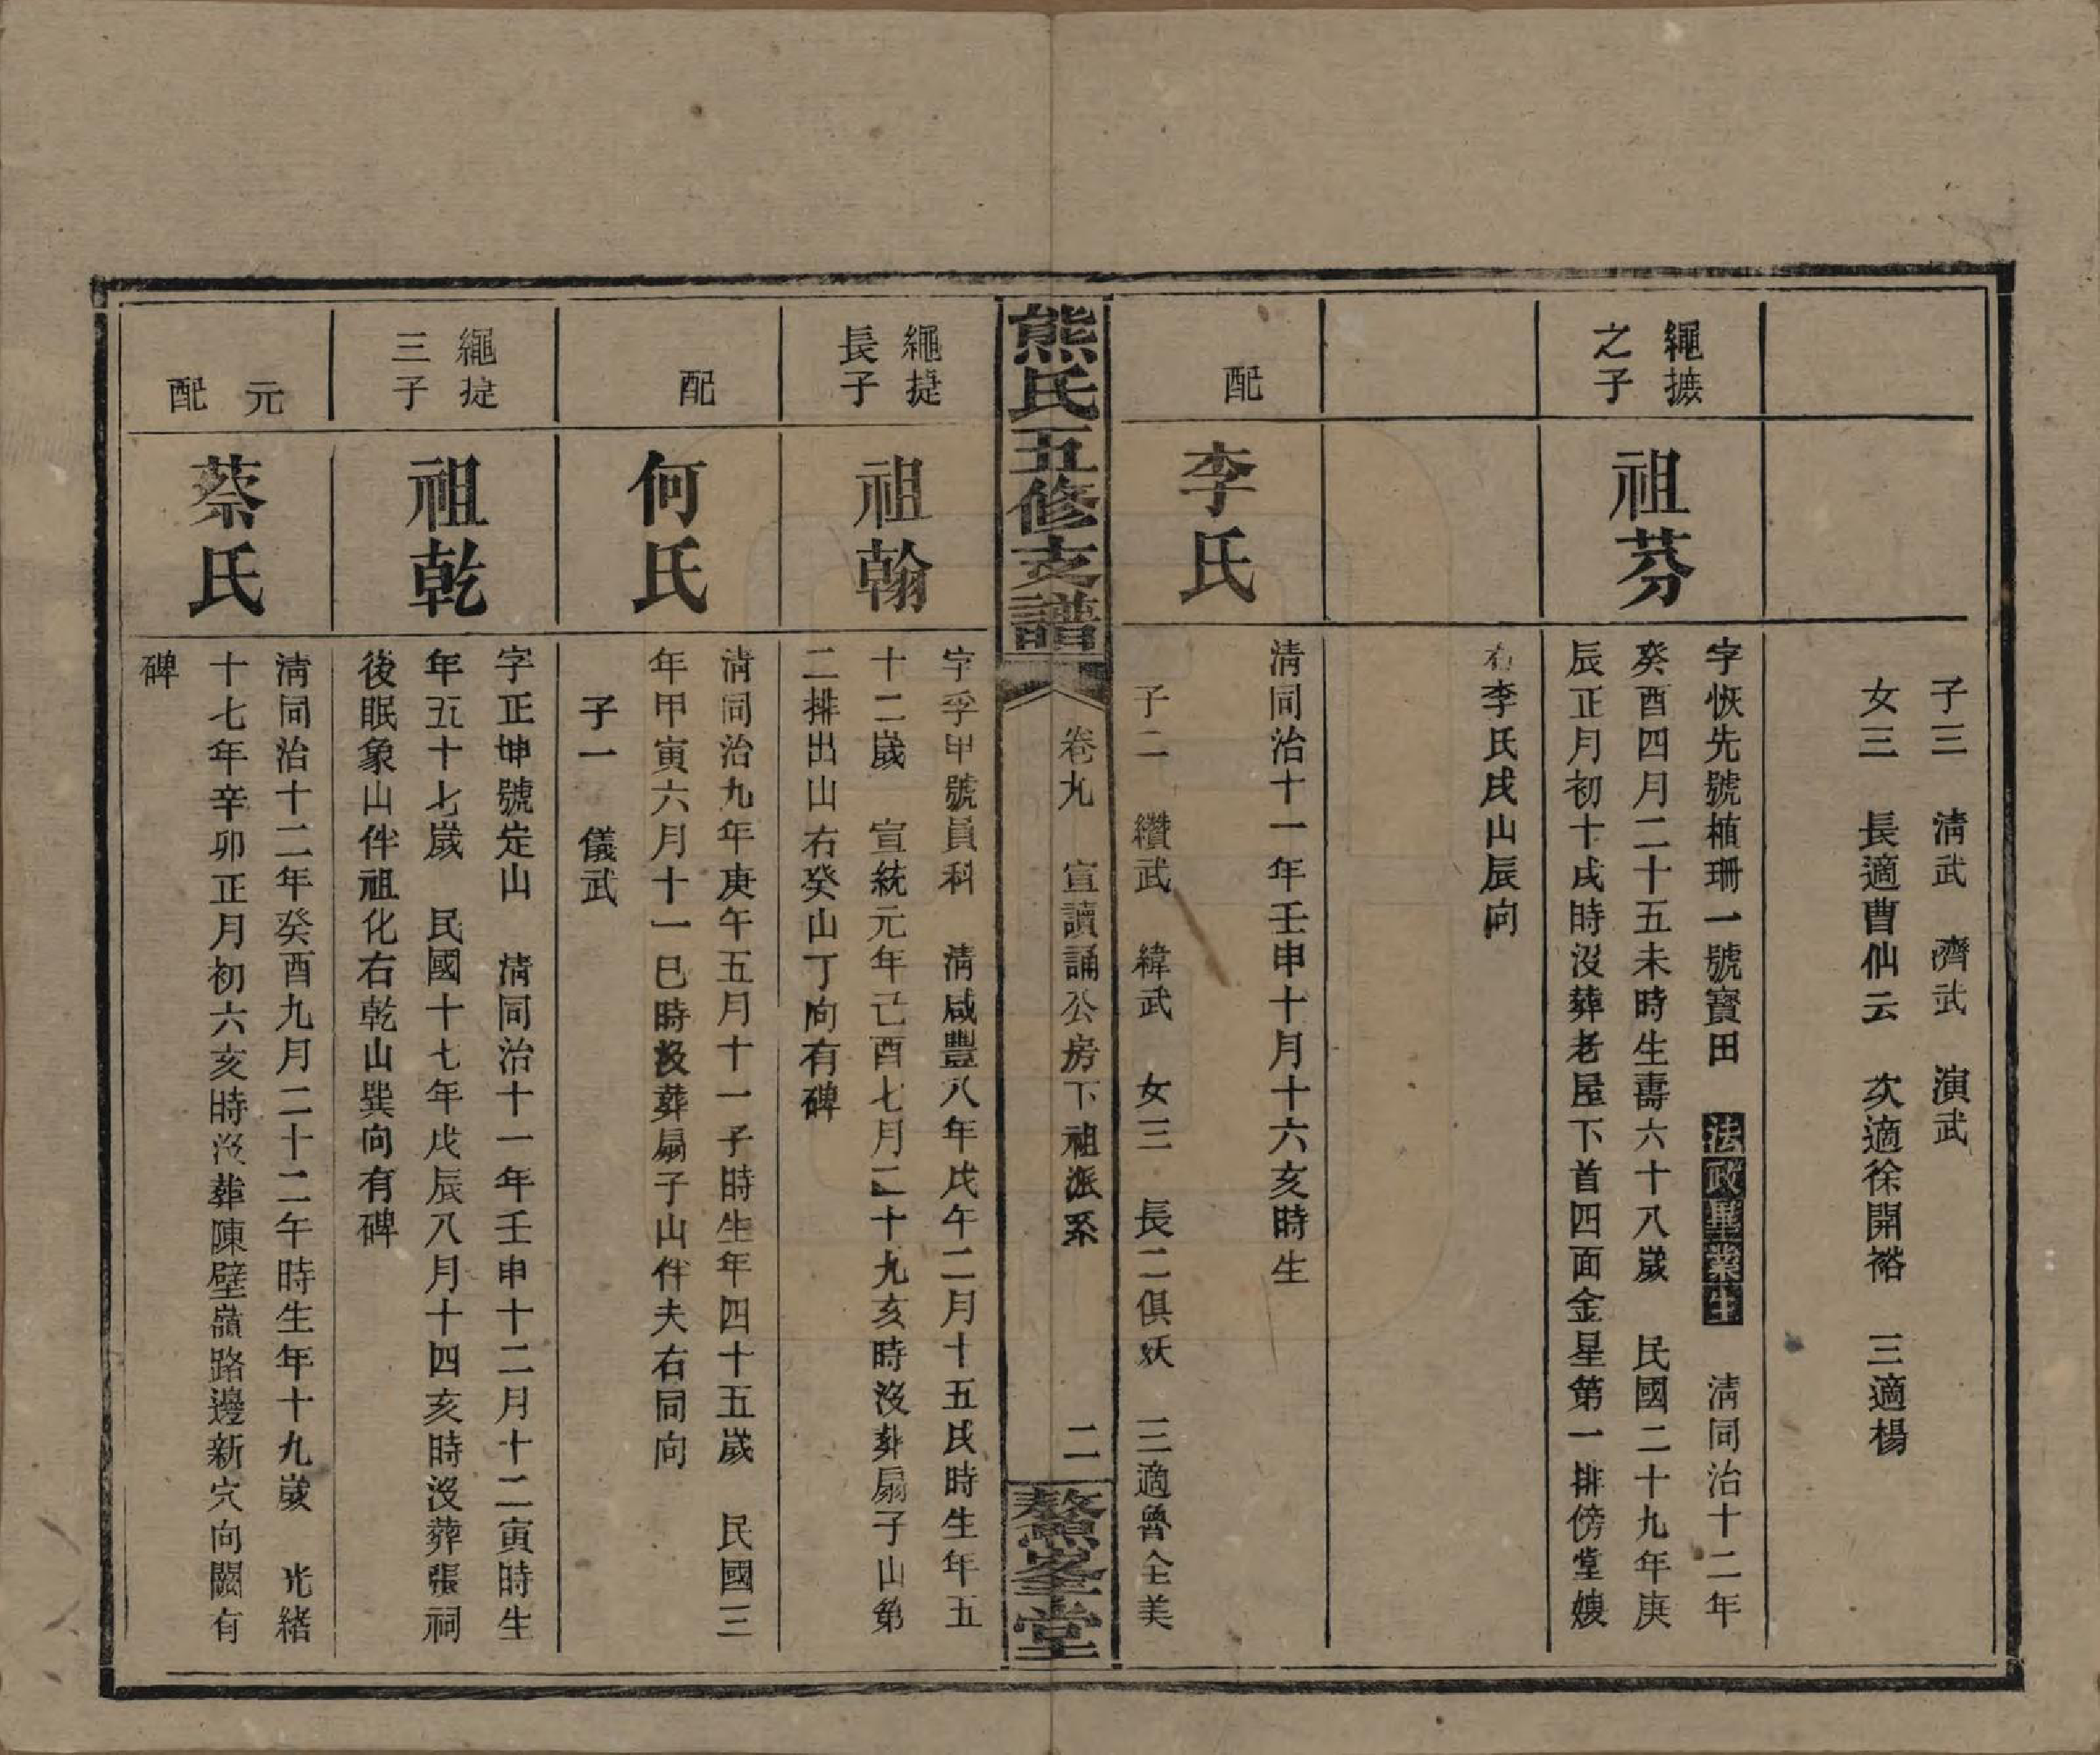 子三　清武　濟武　演武
女三　長適曹仙云　次適徐開裕　三適楊
繩摭
之子
祖芬
字恢先號植珊一號寶田　法政畢業生　清同治十二年
癸酉四月二十五未時生壽六十八歲　民國二十九年庚
辰正月初十戌時沒葬老屋下首四面金星第一排傍堂嫂
右李氏戌山辰向
配
李氏
清同治十一年壬申十月十六亥時生
子二　纘武　緯武　女三　長二俱妖　三適魯全美
熊氏五修支譜
卷九　宣讀誦公房下祖派系　二
堂
繩捷
長子
祖翰
字孚甲號員科　清咸豐八年戊午二月十五戌時生年五
十二歲　宣統元年己酉七月二十九亥時沒葬扇子山第
二排出山右癸山丁向有碑
配
何氏
清同治九年庚午五月十一子時生年四十五歲　民國三
年甲寅六月十一巳時沒葬扇子山伴夫右同向
子一　儀武
繩捷
三子
祖乾
字正坤號定山　清同治十一年壬申十二月十二寅時生
年五十七歲　民國十七年戊辰八月十四亥時沒葬張祠
後眠象山伴祖化右乾山巽向有碑
元
配
蔡氏
清同治十二年癸酉九月二十二午時生年十九歲　光緒
十七年辛卯正月初六亥時沒葬陳壁嶺路邊新穴向闕有
碑